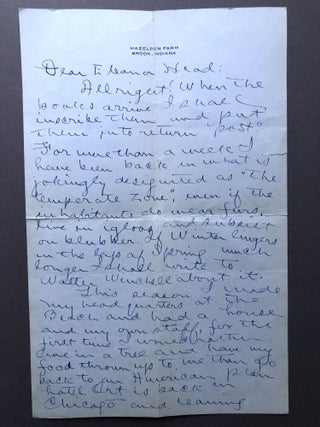 HAZELDEN FARM
BROOK, INDIANA
Dear Eleanor Head:
All right! When the
books arrive I shall
inscribe them and put
them into return "post"
For more than a week I
have been back in what is
jokingly designated as "The
temperate zone", even if the
inhabitants do wear furs,
live in igloos and subsist
on blubber. If Winter lingers
in the lap of Spring much
longer I shall write to
Walter Winchell about it.
This season I made
my head quarters at the
Beach and had a house
and my own staff, for the
first time. I would rather
live in a tree and have my
food thrown up to me than go
back to an American plan
hotel. Art is back in
Chicago and leaving